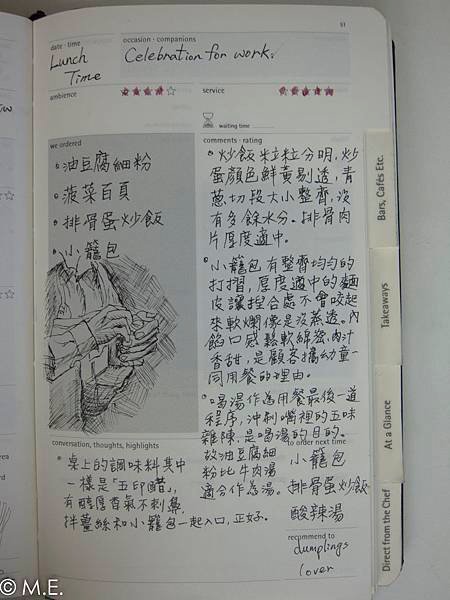 51
date · time
occasion · companions
Lunch
Time
Celebration for work.
ambience
★★★★☆
service
★★★★★
waiting time
we ordered
comments · rating
油豆腐細粉
菠菜百頁
排骨蛋炒飯
小籠包
炒飯粒粒分明,炒
蛋顏色鮮黃剔透,青
蔥切段大小整齊,沒
有多餘水分。排骨肉
片厚度適中。
小籠包有整齊均勻的
打摺,厚度適中的麵
皮讓捏合處不會咬起
來軟爛像是沒蒸透。內
餡口感鬆軟綿密,肉汁
香甜,是顧客攜幼童一
同用餐的理由。
喝湯作為用餐最後一道
程序,沖刷嘴裡的五味
雜陳,是喝湯的目的。
故油豆腐細
粉比牛肉湯
適合作為湯。
conversation, thoughts, highlights
桌上的調味料其中
一樣是「五印醋」,
有醇厚香氣不刺鼻,
拌薑絲和小籠包一起入口,正好。
to order next time
小籠包
排骨蛋炒飯
酸辣湯
recommend to
dumplings
lover
Bars, Cafés Etc.
Takeaways
At a Glance
Direct from the Chef
© M.E.